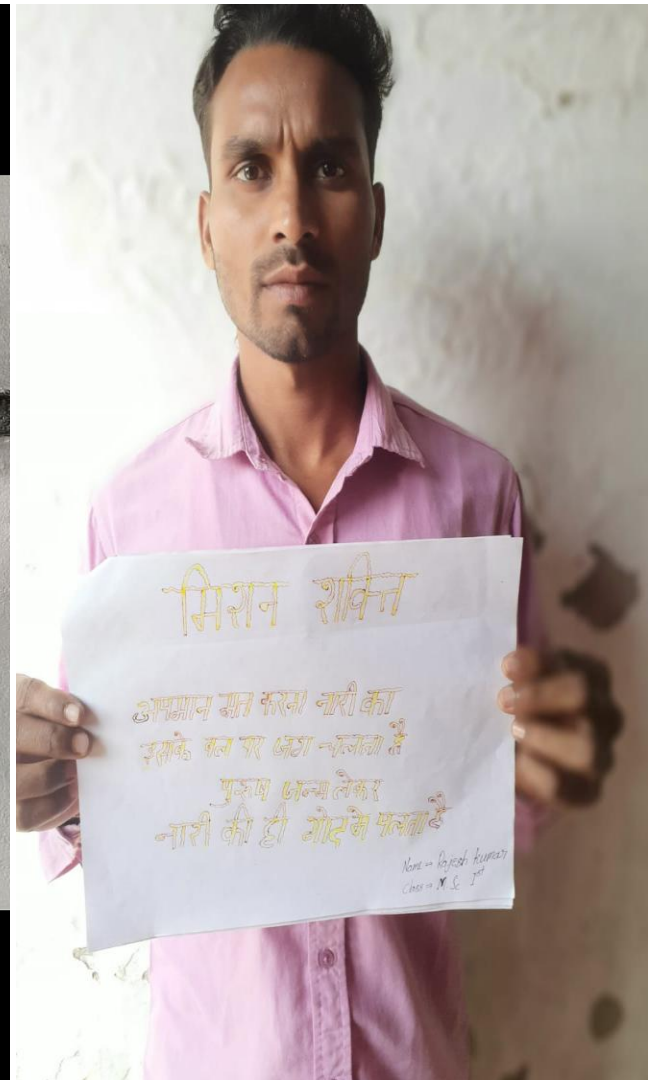 मिशन शक्ति
अपमान मत करना नारी का
इसके बल पर जग चलता है
पुरुष जन्म लेकर
नारी की ही गोद मे पलता है
Name - Rajesh kumar
Class - M. Sc Ist